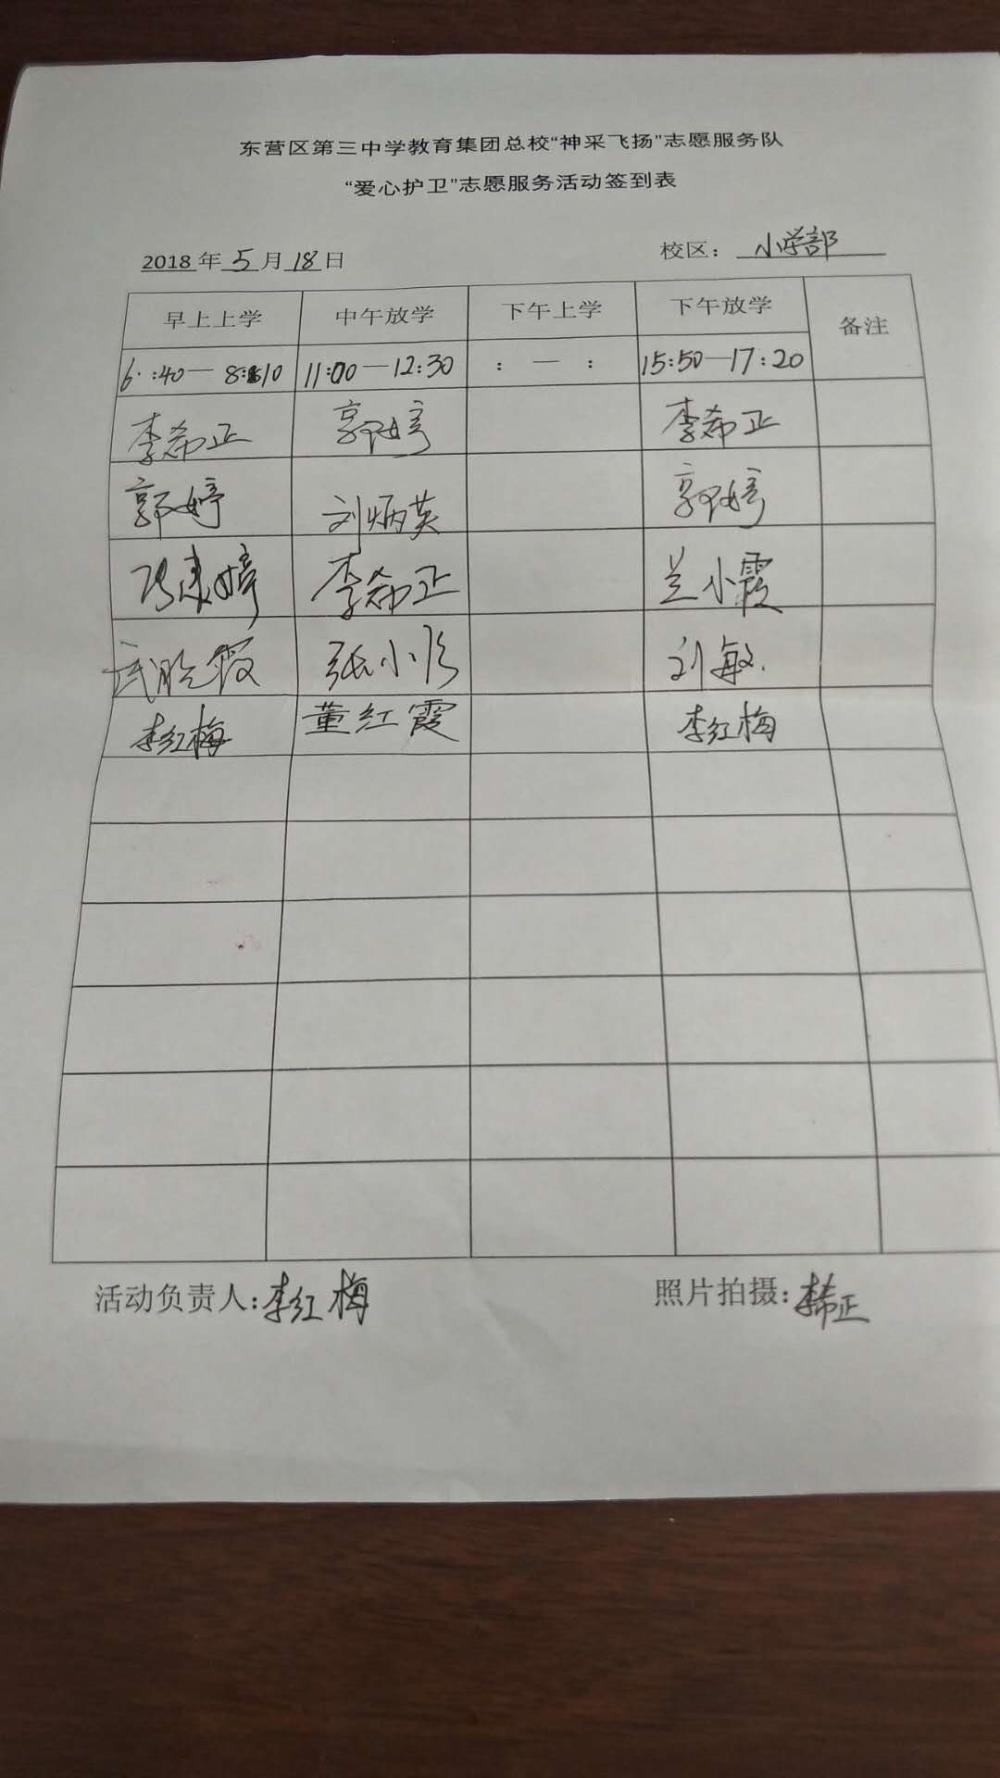 东营区第三中学教育集团总校“神采飞扬”志愿服务队
“爱心护卫”志愿服务活动签到表
2018年5月18日 校区：小学部
早上上学 中午放学 下午上学 下午放学 备注
6:40—8:10 11:00—12:30 : — : 15:50—17:20
李希正 郭婷 李希正
郭婷 刘炳英 郭婷
李希正 兰小霞
武晓霞 张小 刘敏
李红梅 董红霞 李红梅
活动负责人：李红梅 照片拍摄：李希正